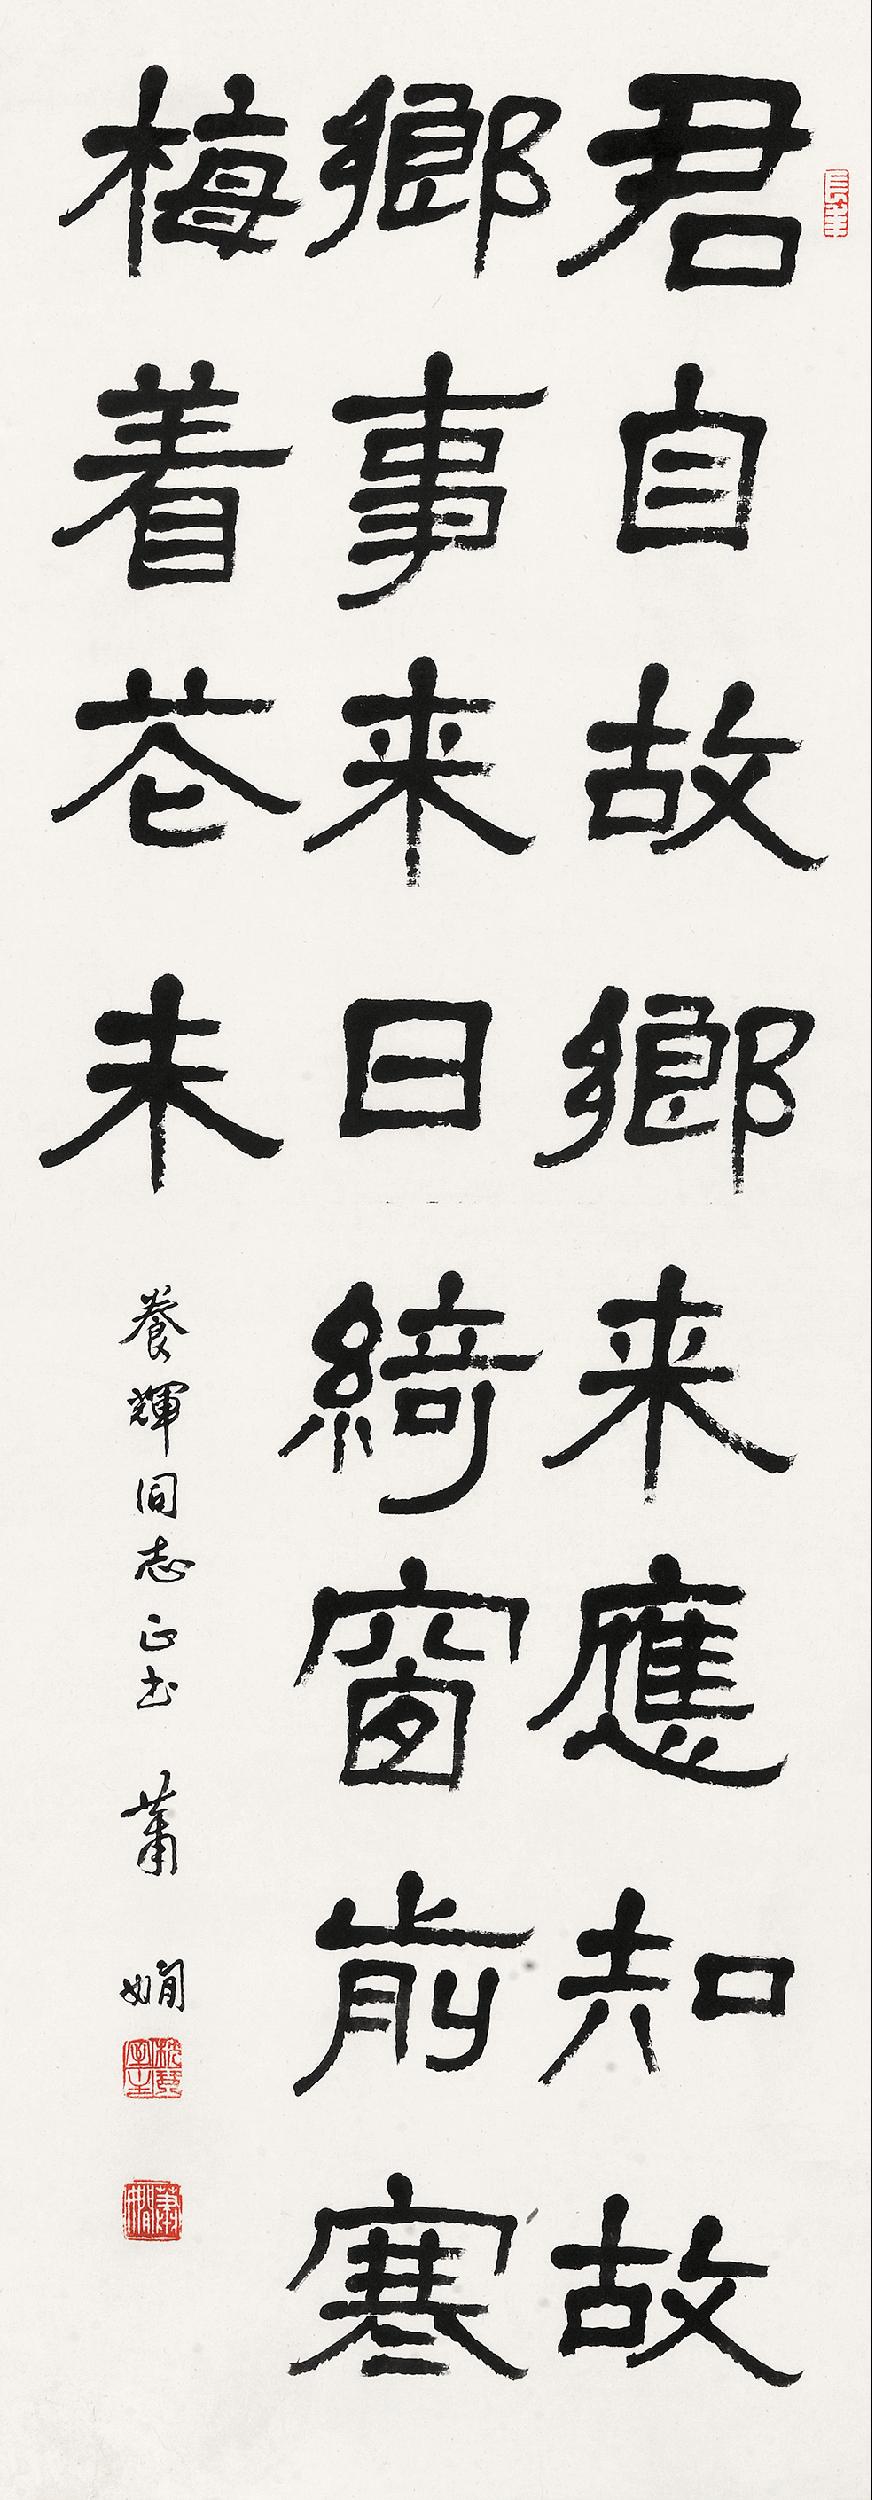 君自故鄉来應知故
鄉事来日綺窗前寒
梅着花未
養輝同志正书 蕭嫻
蕭嫻